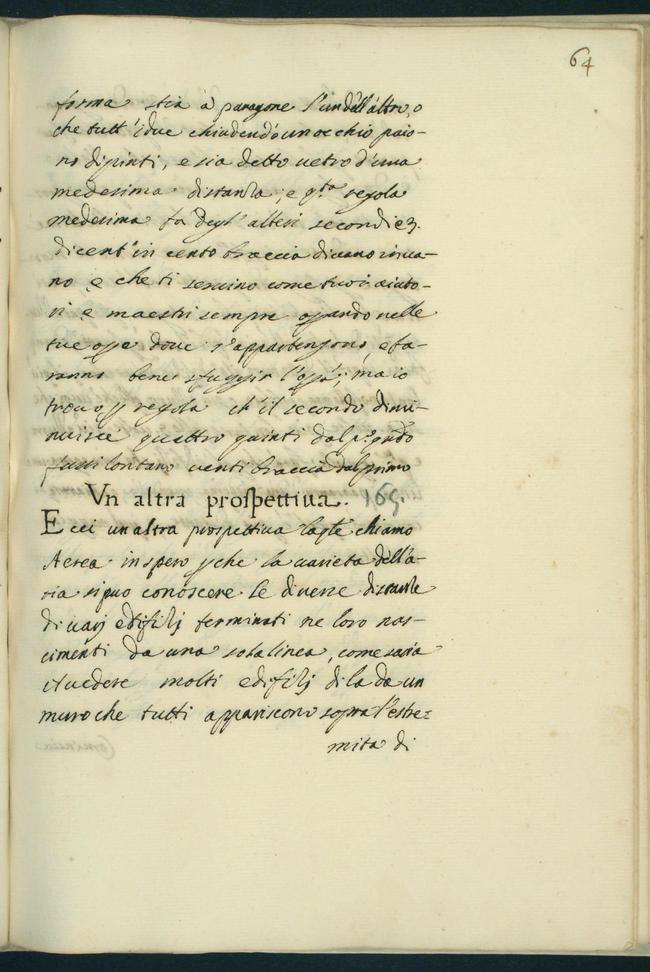 64
forma stia à paragone l'un dell'altro, o
che tutt'i due chiudend'o un occhio paio-
no dipinti, e sia detto vetro d'una
medesima distanza, e q.ta regola
medesima fa degl'alberi secondi e 3.
di cent'in cento braccia di mano in ma-
no e che ti servino come tuoi aiuto-
ri e maestri sempre operando nelle
tue op.e dove s'appartengono, e fa-
ranno bene sfuggir l'op.a; ma io
trovo p regola ch'il secondo dimi-
nuisce quattro quinti dal p.o q.ndo
fussi lontano venti braccia dal primo
Vn altra prospettiua. 165.
E cci un altra prospettiua laq.le chiamo
Aerea in pero pche la varieta dell'a-
ria si puo conoscere le diverse distanze
di varij edifitij terminati ne loro nas-
cimenti da una sola linea, come saria
il vedere molti edifitij di la da un
muro che tutti appariscono sopra l'estre-
mita di